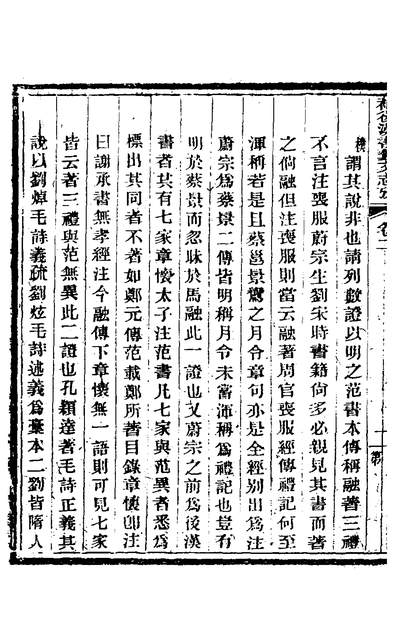 補後漢書藝文志攷 卷二
謂其說非也請列數證以明之范書本傳稱融著三禮
不言注喪服蔚宗生劉宋時書籍尙多必親見其書而著
之倘融但注喪服則當云融著周官喪服經傳禮記何至
渾稱若是且蔡邕景鸞之月令章句亦是全經別出爲注
蔚宗爲蔡景二傳皆明稱月令未當渾稱爲禮記也豈有
明於蔡景而忽昧於馬融此一證也又蔚宗之前爲後漢
書者其有七家章懷太子注范書凡七家與范異者悉爲
標出其同者不著如鄭元傳范載鄭所著目錄章懷卽注
曰謝承書無孝經注今融傳下章懷無一語則可見七家
皆云著三禮與范無異此二證也孔穎達著毛詩正義其
說以劉焯毛詩義疏劉炫毛詩述義爲稾本二劉皆隋人